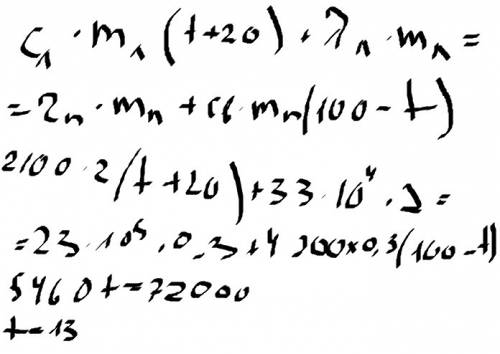 c₁ · m₁ (t+20) + λ₁ · m₁ =
= r п · m п + c в · m п (100 - t)
2100 · 2 (t + 20) + 33 · 10⁴ · 2 =
= 23 · 10⁵ · 0.3 + 4 200 × 0,3 (100 - t)
5460 t = 72000
t = 13